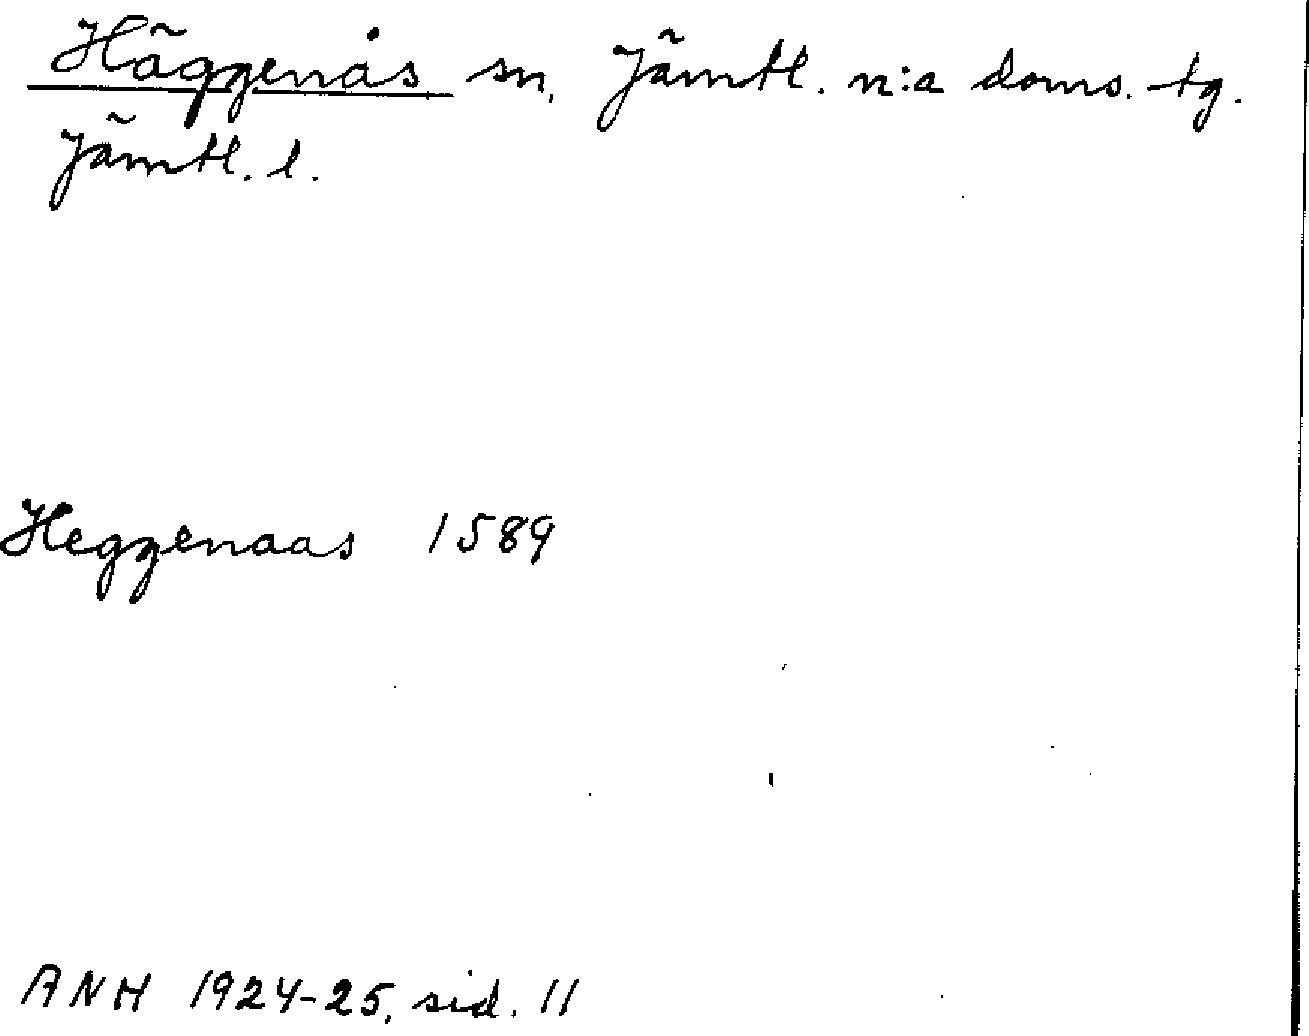 Häggenås sn, Jämtl. n:a doms. tg.
Jämtl. l.
Heggenaas 1589
ANH 1924-25, sid. 11